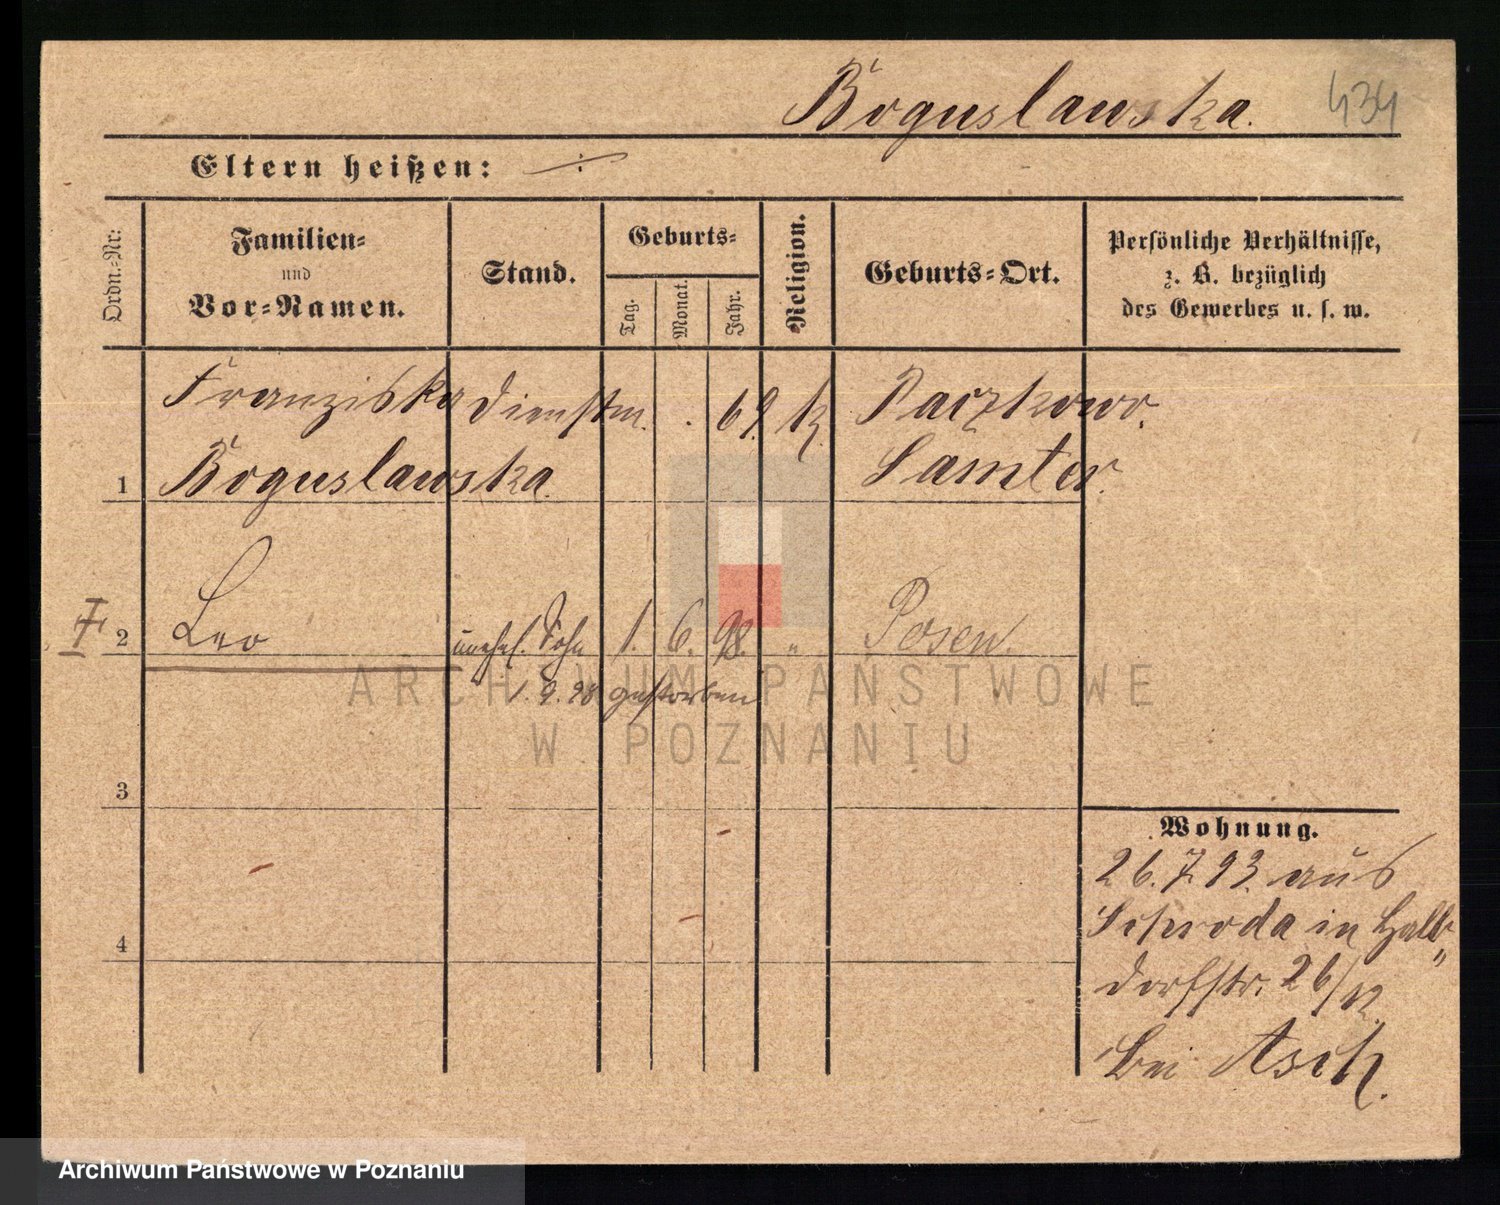 Boguslawska. 434
Eltern heißen: ÷
Ordn.-Nr:
Familien-
und
Vor-Namen.
Stand.
Geburts-
Tag.
Monat.
Jahr.
Religion.
Geburts-Ort.
Persönliche Verhältnisse,
z. B. bezüglich
des Gewerbes u. s. w.
Franziska Dienstm. . 69. k. Paczkowo.
1 Boguslawska. Samter.
2 Leo unehel. Sohn 1. 6. 98. " Posen.
1. 9. 98 gestorben
ARCHIWUM PAŃSTWOWE
W POZNANIU
3
4
Wohnung.
26.7.93. aus
Schroda in Halb-
dorfstr. 26/
bei Asch.
Archiwum Państwowe w Poznaniu